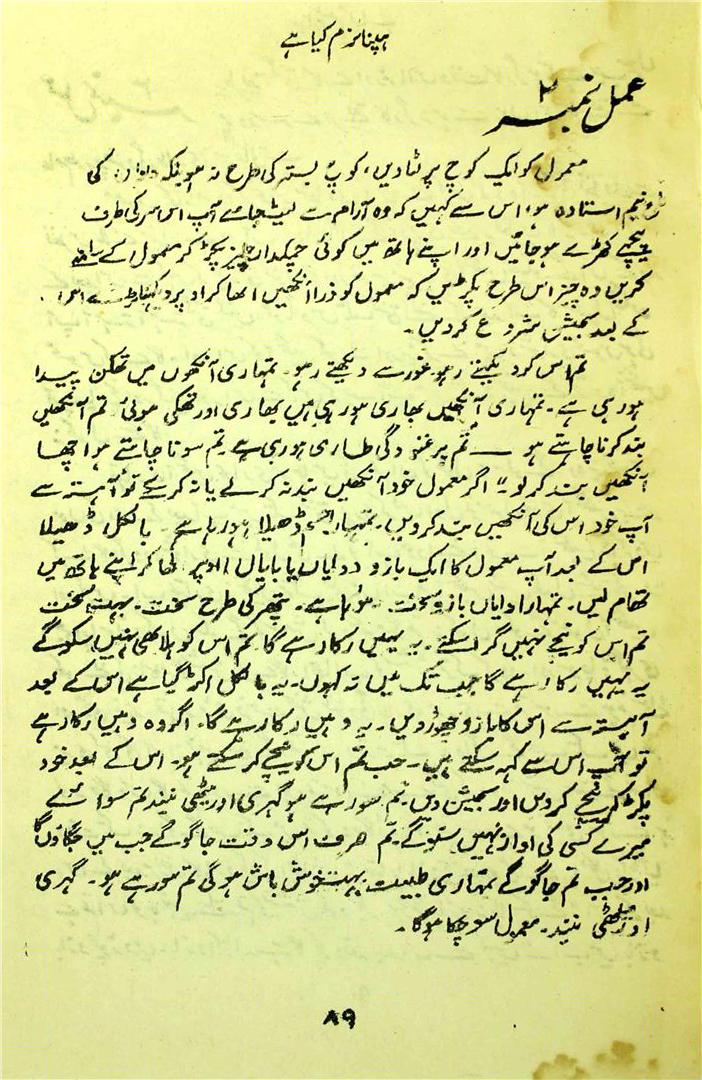 ہپناٹزم کیا ہے
عمل نمبر ۲
معمول کو ایک کوچ پر لٹا دیں، کوچ بستر کی طرح نہ ہو بلکہ دیوار کی
نیم استادہ ہو، اس سے کہیں کہ وہ آرام سے لیٹ جائے آپ اس سر کی طرف
پیچھے کھڑے ہو جائیں اور اپنے ہاتھ میں کوئی چمکدار چیز پکڑ کر معمول کے سامنے
کریں وہ چیز اس طرح پکڑیں کہ معمول کو ذرا آنکھیں اٹھا کر اوپر دیکھنا پڑے اس
کے بعد سجیشن شروع کر دیں۔
تم اس کو دیکھتے رہو غور سے دیکھتے رہو۔ تمہاری آنکھوں میں تھکن پیدا
ہو رہی ہے۔ تمہاری آنکھیں بھاری ہو رہی ہیں بھاری اور تھکی ہوئی۔ تم آنکھیں
بند کرنا چاہتے ہو ــــ تم پر غنودگی طاری ہو رہی ہے۔ تم سونا چاہتے ہو اچھا
آنکھیں بند کر لو۔" اگر معمول خود آنکھیں بند نہ کرے یا نہ کر سکے تو آہستہ سے
آپ خود اس کی آنکھیں بند کر دیں۔ تمہارا جسم ڈھیلا ہو رہا ہے۔ بالکل ڈھیلا
اس کے بعد آپ معمول کا ایک بازو دایاں یا بایاں اوپر اٹھا کر اپنے ہاتھ میں
تھام لیں۔ تمہارا دایاں بازو سخت ہو رہا ہے۔ پتھر کی طرح سخت۔ بہت سخت
تم اس کو نیچے نہیں گرا سکتے۔ یہ یہیں رکا رہے گا تم اس کو ہلا بھی نہیں سکو گے
یہ یہیں رکا رہے گا جب تک میں نہ کہوں۔ یہ بالکل اکڑ گیا ہے اس کے بعد
آہستہ سے اس کا بازو چھوڑ دیں۔ یہ وہیں رکا رہے گا۔ اگر وہ وہیں رکا رہے
تو آپ اس سے کہہ سکتے ہیں۔ جب تم اس کو نیچے کر سکتے ہو۔ اس کے بعد خود
پکڑ کر نیچے کر دیں اور سجیشن دیں۔ تم سو رہے ہو گہری اور میٹھی نیند تم سوائے
میرے کسی کی آواز نہیں سنو گے۔ تم صرف اس وقت جاگو گے جب میں جگاؤں گا
اور جب تم جاگو گے تمہاری طبیعت بہت خوش باش ہو گی تم سو رہے ہو۔ گہری
اور میٹھی نیند۔ معمول سو چکا ہو گا۔
۸۹